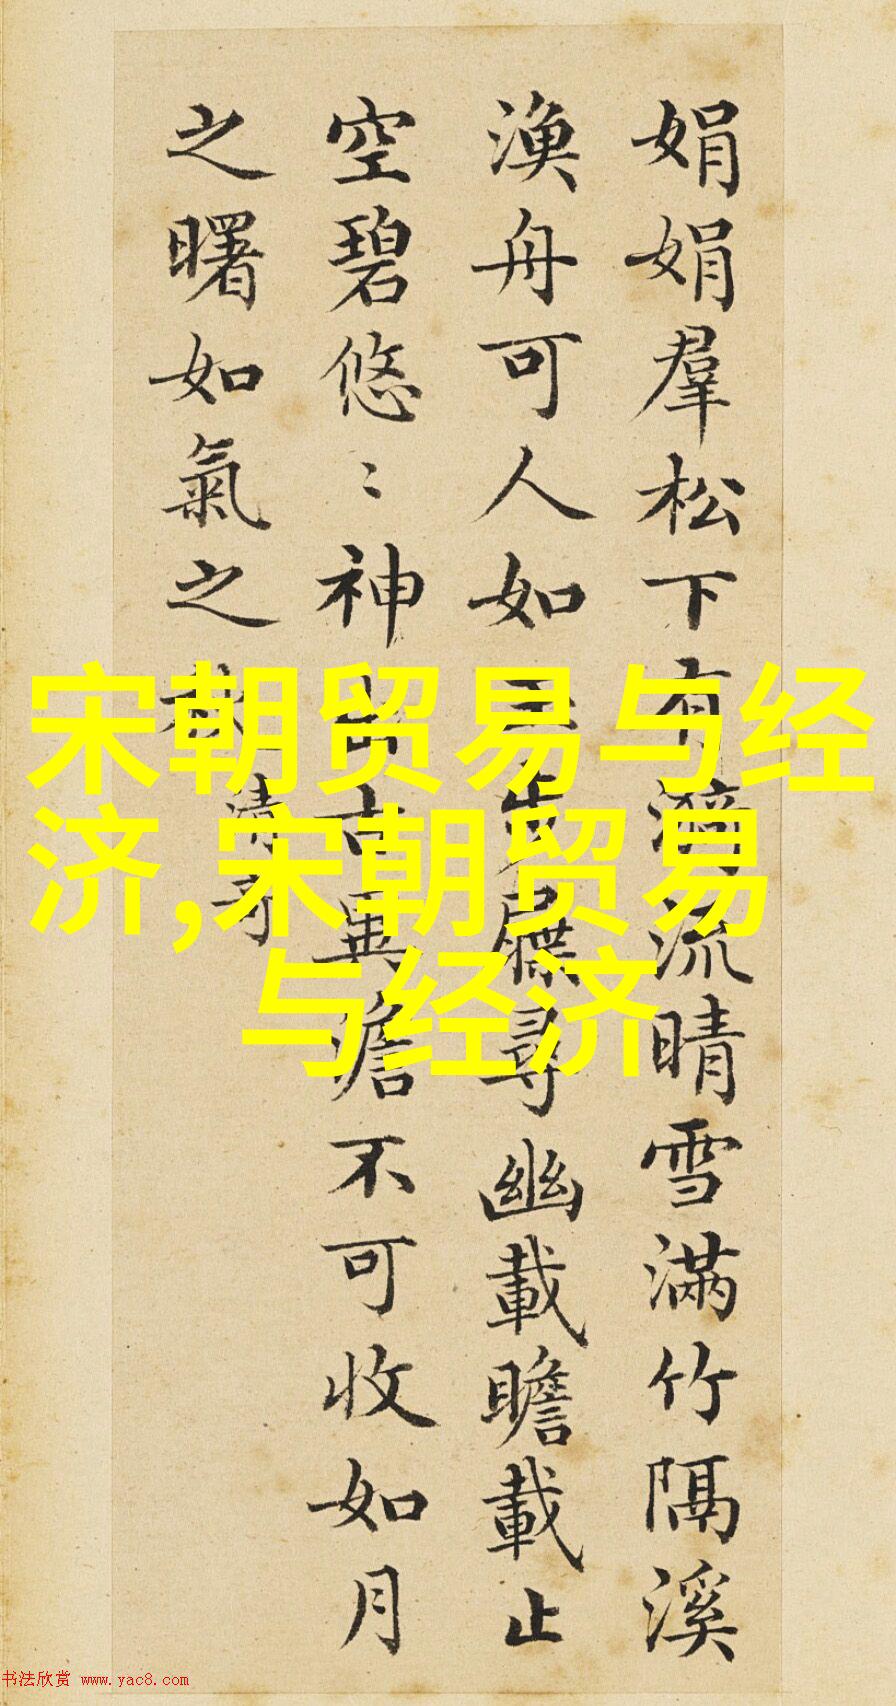 娟娟羣松下有漪流晴雪滿竹隔溪
漁舟可人如玉步屧尋幽載瞻載止
空碧悠〻神出古異澹不可收如月
之曙如氣之秋
清奇
宋朝贸易与经
济,宋朝贸易
与经济
书法欣赏 www.yac8.com